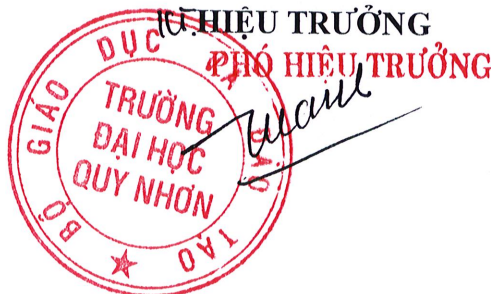 KT. HIỆU TRƯỞNG
PHÓ HIỆU TRƯỞNG
BỘ GIÁO DỤC VÀ ĐÀO TẠO
TRƯỜNG
ĐẠI HỌC
QUY NHƠN